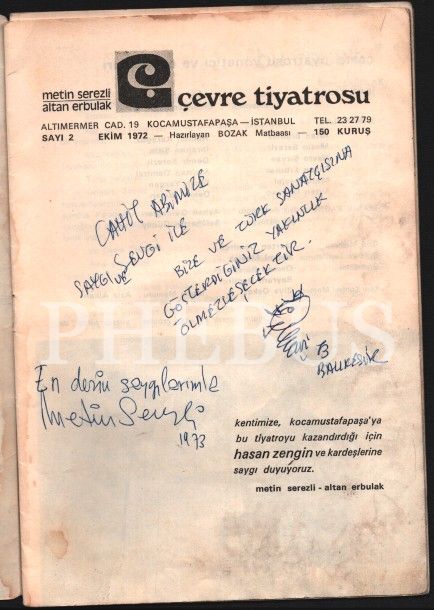 metin serezli
altan erbulak
çevre tiyatrosu
ALTIMERMER CAD. 19 KOCAMUSTAFAPAŞA — İSTANBUL TEL. 23 27 79
SAYI 2 EKİM 1972 — Hazırlayan BOZAK Matbaası — 150 KURUŞ
CAHİT ABİMİZE
SAYGI VE SEVGİ İLE
BİZE VE TÜRK SANATÇISINA
GÖSTERDİĞİNİZ YAKINLIK
ÖLMEZLEŞECEKTİR.
73
BALIKESİR
PHEBUS
En derin saygılarımla
Metin Serezli
1973
kentimize, kocamustafapaşa'ya
bu tiyatroyu kazandırdığı için
hasan zengin ve kardeşlerine
saygı duyuyoruz.
metin serezli - altan erbulak